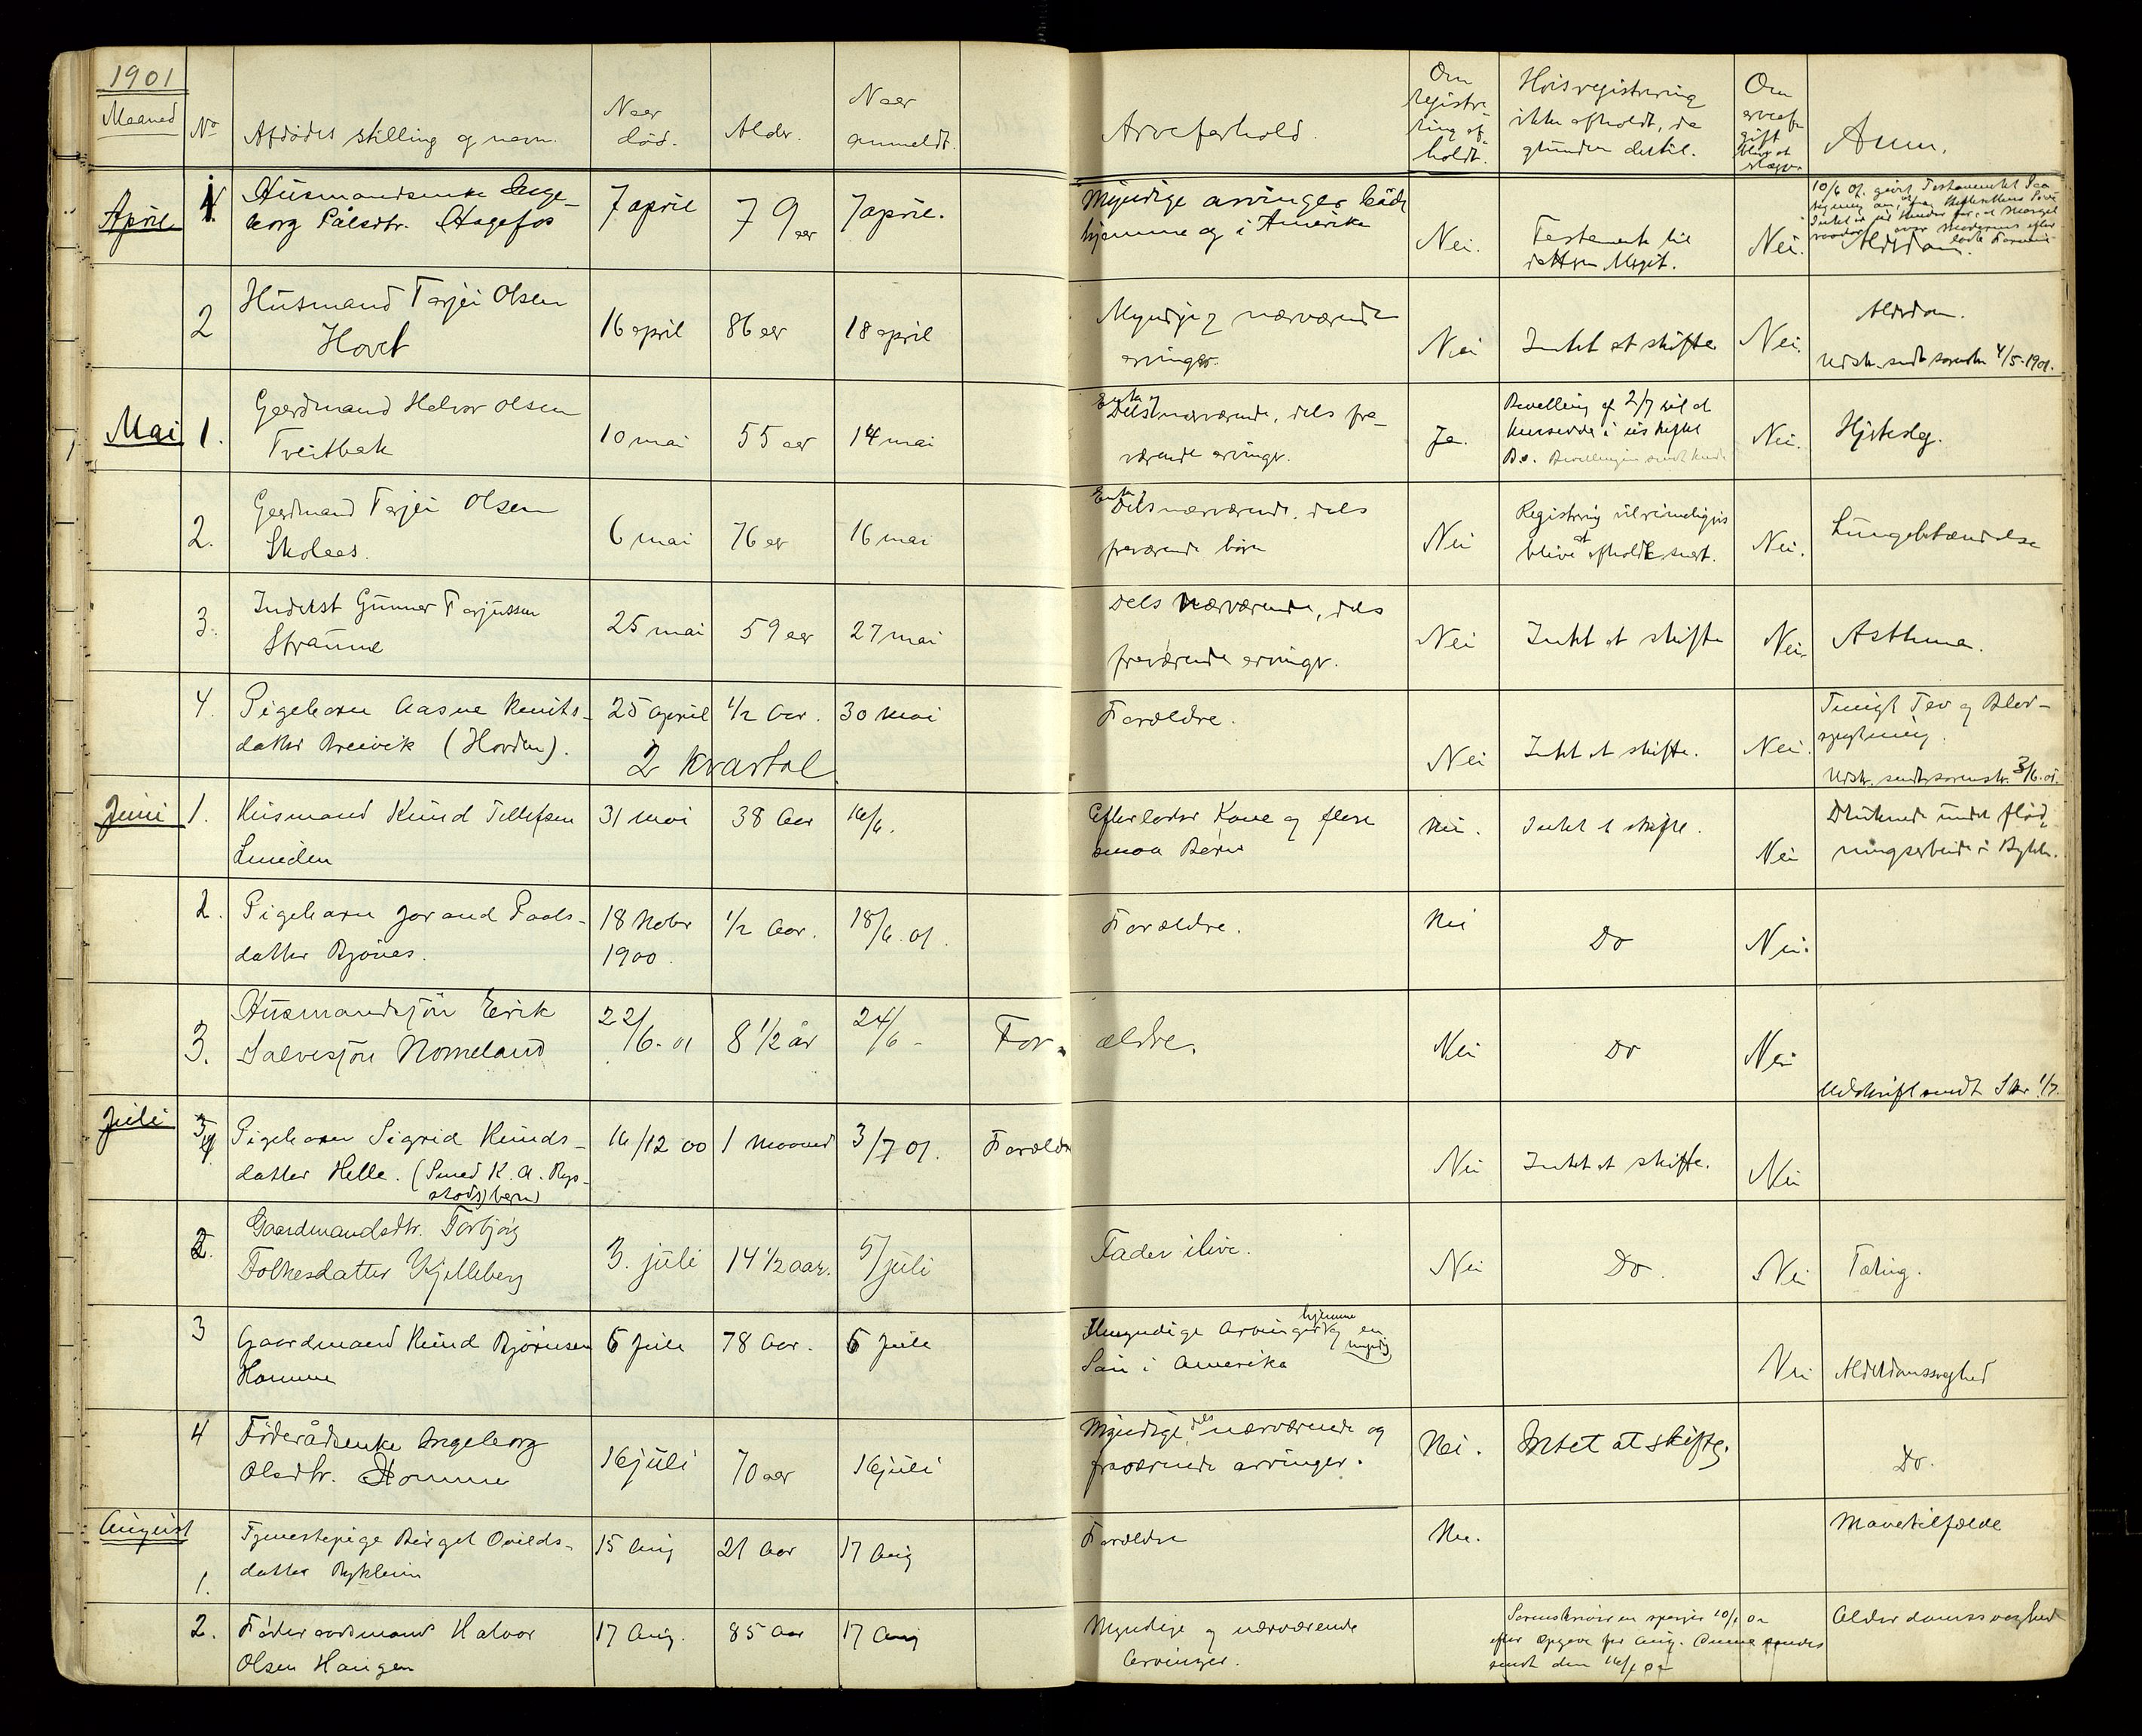 1901
Maaned
No
Afdødes stilling og navn.
Naar død.
Alder.
Naar anmeldt.
Arveforhold.
Om registrering afholdt.
Hvis registrering ikke afholdt, da grunden dertil.
Om arveafgift bliver at
Anm.
April
1.
Husmandsenke Inge-
borg Pålsdtr. Hagefos
7 april
79 aar
7 april.
Myndige arvinger både
hjemme og i Amerika
Nei.
Testamente til
Nei.
Alderdom.
2
Husmand Terjei Olsen
Hovet
16 april
86 aar
18 april
Myndige nærværende
arvinger.
Nei
Intet at skifte
Nei.
Alderdom.
Udskr. sendt sorenskr 4/5-1901.
Mai
1.
Gaardmand Halvor Olsen
Tveitbak
10 mai
55 aar
14 mai
Enke og
Dels nærværende, dels fra-
værende arvinger.
Ja.
Bevilling af 2/7 til at
hensidde i uskiftet
Bo.
Nei.
Hjerteslag.
2.
Gaardmand Terjei Olsen
Skolaas.
6 mai
76 aar
16 mai
Enke
Dels nærværende, dels
fraværende børn
Nei
Registrering vil rimeligvis
blive afholdt snart.
Nei.
Lungebetændelse
3.
Inderst Gunnar Terjussen
Straume
25 mai
59 aar
27 mai
Dels nærværende, dels
fraværende arvinger.
Nei
Intet at skifte
Nei.
Asthma.
4.
Pigebarn Aasne Knuts-
datter Breivik (Horden).
25 april
1/2 Aar.
30 mai
2 kvartal.
Forældre.
Nei
Intet at skifte.
Nei.
Udskr. sendt sorenskr. 3/6.01.
Juni
1.
Husmand Knud Tellefsen
Lunden
31 mai
38 Aar
16/6.
Efterlader Kone og flere
smaa Børn
Nei.
Intet at skifte.
Nei
Druknede under fløt-
ningsarbeide i Bykle.
2.
Pigebarn Jorand Paals-
datter Bjønes.
18 Nobr
1900.
1/2 Aar.
18/6.01.
Forældre.
Nei
Do
Nei.
3.
Husmandssjøn Erik
Salvesjøn Nomeland
22/6-01
8 1/2 år
24/6-
Forældre.
Nei
Do
Nei
Udskrift sendt Skr 1/7.
Juli
Pigebarn Sigrid Knuds-
datter Helle. (Smed K. A. Ryg-
stads) barn)
16/12 00
1 Maaned
3/7 01.
Forældre
Nei
Intet at skifte.
Nei
2.
Gaardmandsdtr. Torbjørg
Folkesdatter Kjelleberg
3. juli
14 1/2 aar.
5/juli
Fader ilive.
Nei
Do.
Nei
Tæring.
3
Gaardmand Knud Bjørnsen
Homme
6 Juli
78 Aar.
6 Juli
Myndige Arvinger hjemme og en myndig
Søn i Amerika
Nei
Alderdomssvaghed
4
Føderådsenke Ingeborg
Olsdtr. Homme
16 juli
70 aar
16 juli
Myndige dels nærværende og
fraværende arvinger.
Nei.
Intet at skifte.
Do.
August
1.
Tjenestepige Birget Ovilds-
datter Rykleim
15 Aug
21 Aar
17 Aug
Forældre
Nei.
Mavetilfælde
2.
Føderaadsmand Halvor
Olsen Haugen
17 Aug.
85 Aar
17 Aug
Myndige og nærværende
Arvinger.
Sorenskriveren spørger
efter Opgave for Aug.
sendt den
Alderdomssvaghed